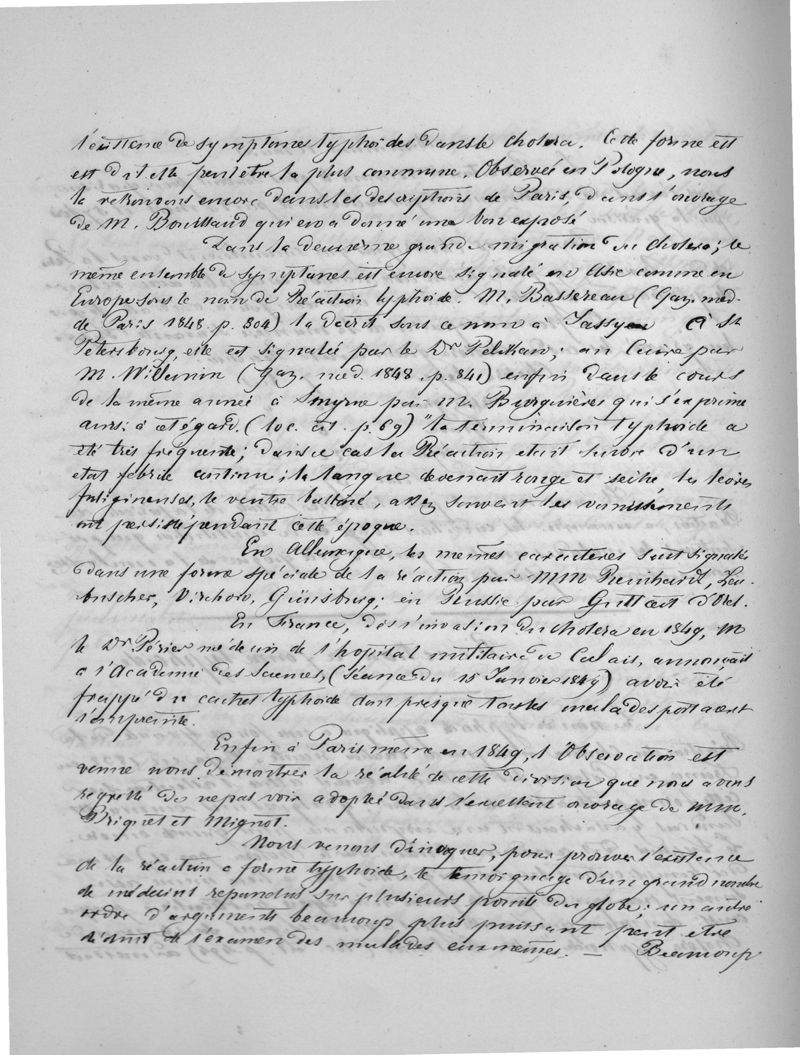 l'existence de symptomes typhoïdes dans le cholera. Cette forme est
est dit elle peut être la plus commune. Observée en Pologne, nous
la retrouvons encore dans les descriptions de Paris, dans l'ouvrage
de M. Bouillaud qui en a donné une bon exposé
Dans la deuxième grande migration du cholera; le
même ensemble de symptomes est encore signalé en Asie comme en
Europe sous le nom de Réaction typhoïde. M. Bassereau (Gaz. med.
de Paris 1848. p. 304) la décrit sous ce nom à Jassy à St
Petersbourg, elle est signalée par le Dr Pelikan; au Caire par
M. Willemin (Gaz. med. 1848. p. 841) enfin dans le cours
de la même année à Smyrne par M. Burguières qui s'exprime
ainsi à cet égard. (loc. cit. p. 89) "la terminaison typhoïde a
été très fréquente; dans ce cas la Réaction était suivie d'un
etat febrile continu; la langue devenait rouge et seche, les levres
fuligineuses, le ventre ballonné, assez souvent les vomissements
ont persisté pendant cette époque.
En Allemagne, les memes caractères sont signalés
dans une forme spéciale de la réaction par MM Reinhardt, Leu-
buscher, Virchow, Günsburg; en Russie par Guttceit d'Orel.
En France, dès l'invasion du cholera en 1849, M
le Dr Périer médecin de l'hopital militaire de Calais, annonçait
a l'Academie des Sciences, (Séance du 15 Janvier 1849) avoir été
frappé du cachet typhoïde dont presque tous les malades portaient
l'empreinte.
Enfin à Paris même en 1849, l'Observation est
venue nous démontrer la réalité de cette division que nous avons
regretté de ne pas voir adoptée dans l'excellent ouvrage de MM.
Briquet et Mignot.
Nous venons d'invoquer, pour prouver l'existence
de la réaction a forme typhoïde, le témoignage d'un grand nombre
de médecins repandus sur plusieurs points du globe; un autre
ordre d'arguments beaucoup plus puissant peut etre
déduit de l'examen des malades eux memes. — Beaucoup